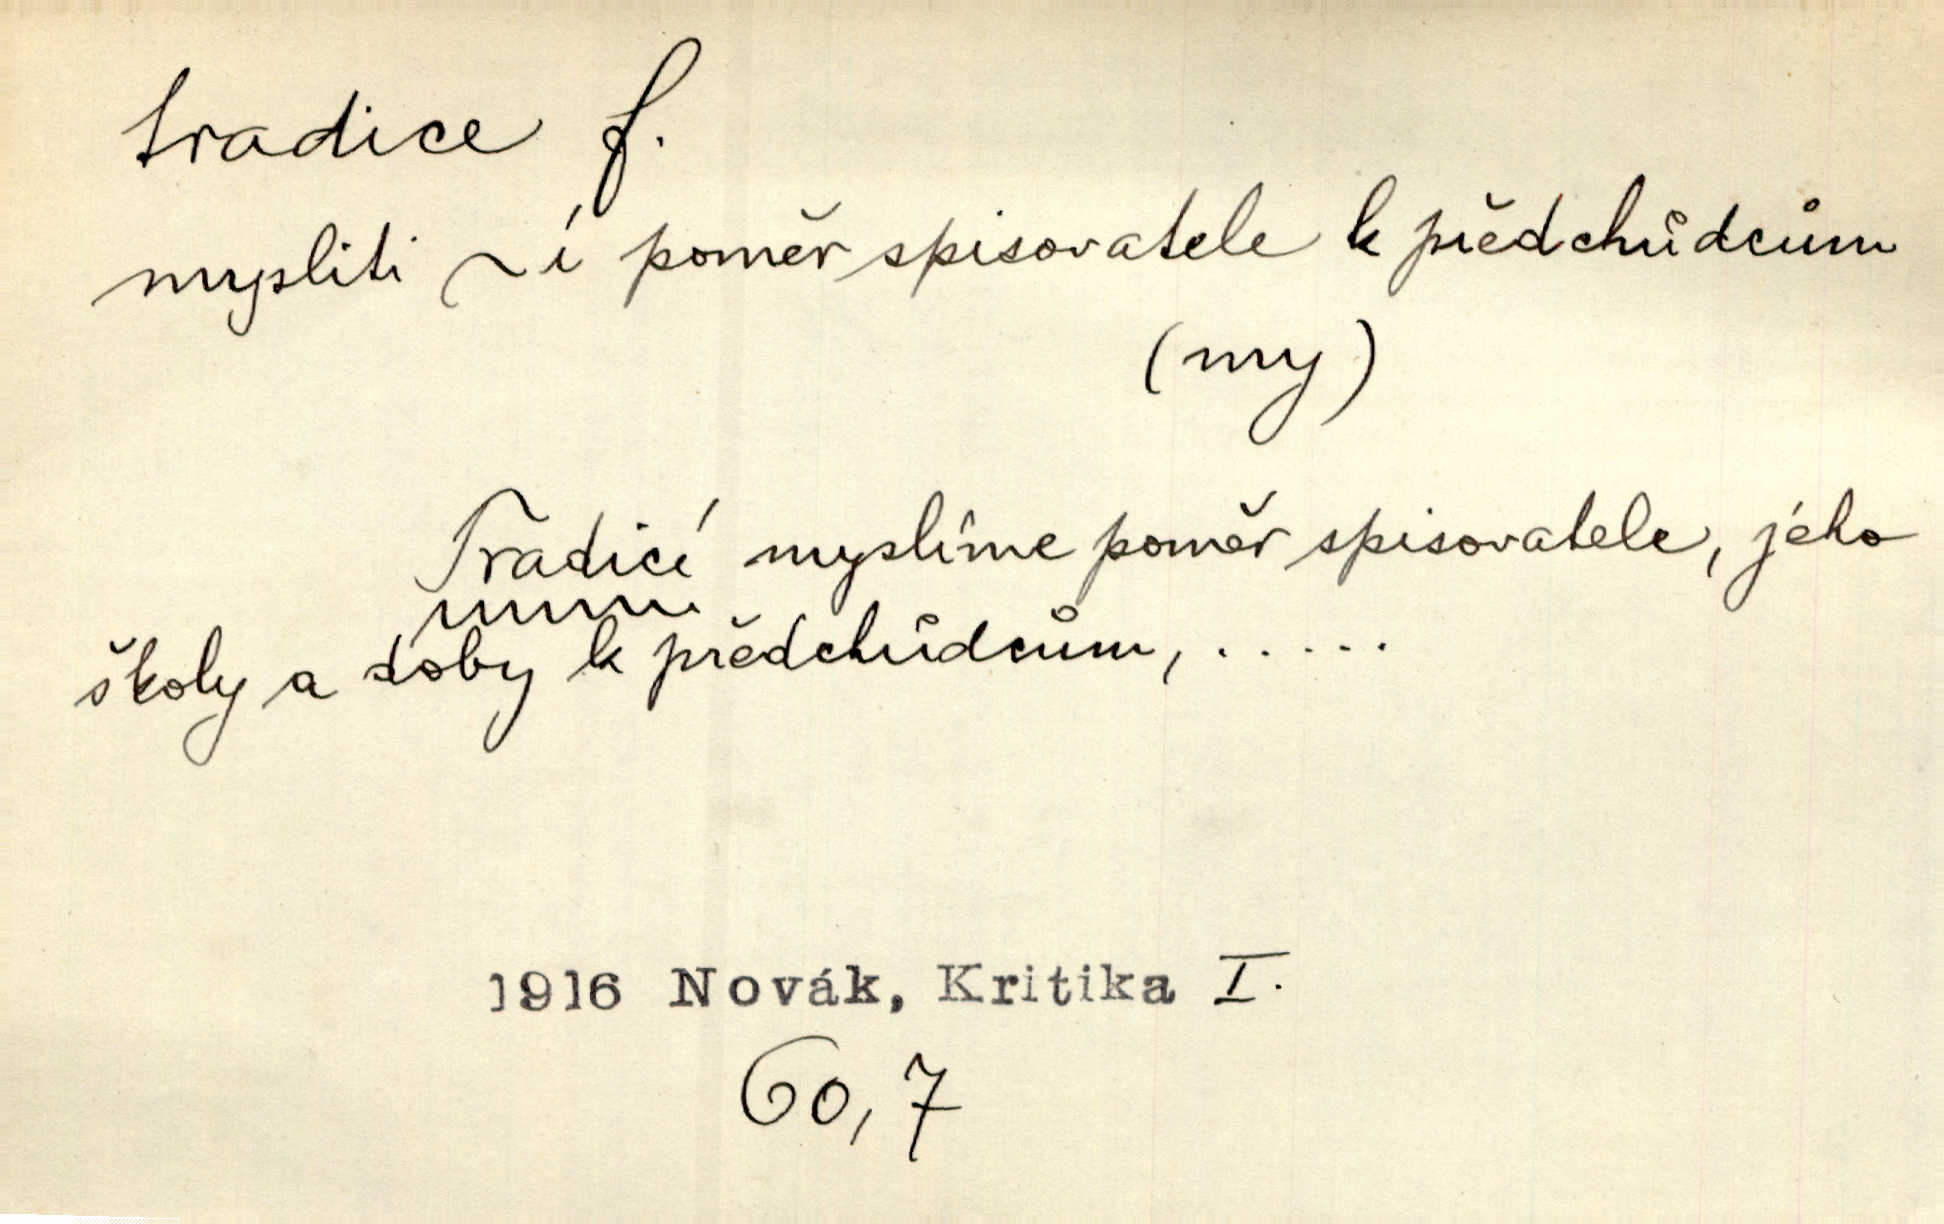 tradice f.
mysliti ~í poměr spisovatele k předchůdcům
(my)
Tradicí myslíme poměr spisovatele, jeho
školy a doby k předchůdcům, .....
1916 Novák, Kritika I.
60,7